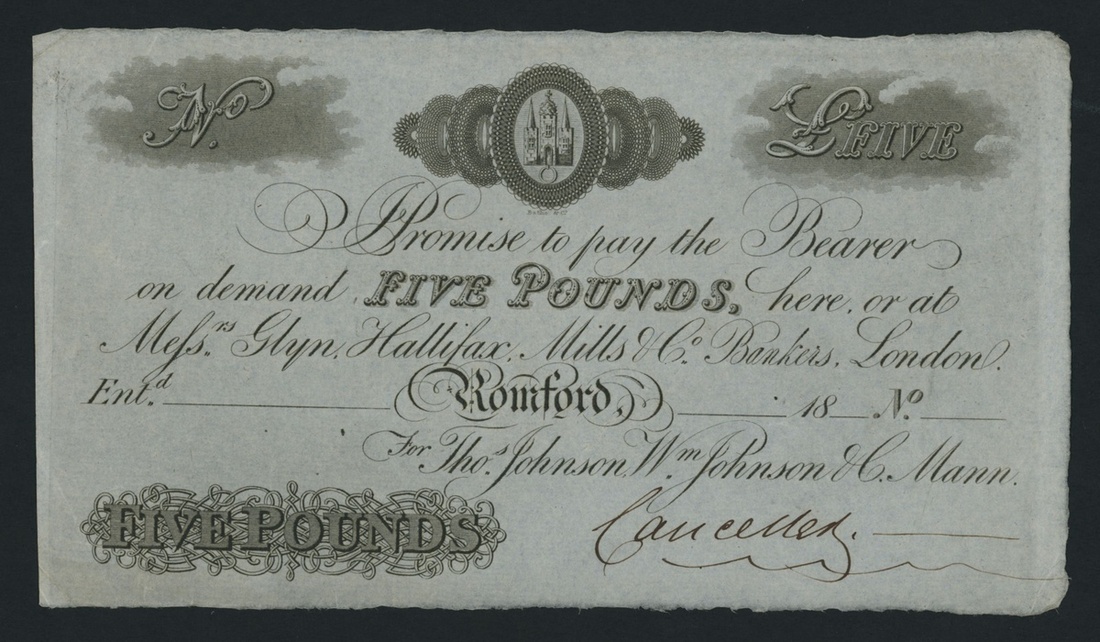 No. £FIVE
I Promise to pay the Bearer
on demand, FIVE POUNDS, here, or at
Messrs. Glyn, Hallifax, Mills & Co. Bankers, London.
Entd. Romford, 18 No.
For Thos. Johnson, Wm. Johnson & C. Mann.
FIVE POUNDS
Cancelled.